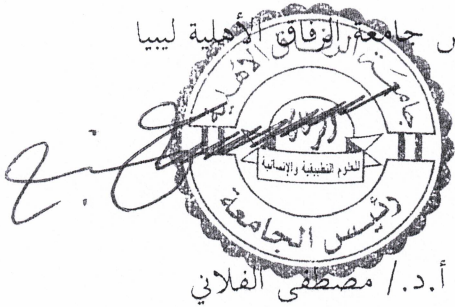 س جامعة الرفاق الأهلية ليبيا
جامعة الرفاق الأهلية
الرفاق
للعلوم التطبيقية والإنسانية
رئيس الجامعة
أ.د./ مصطفى الفلاني